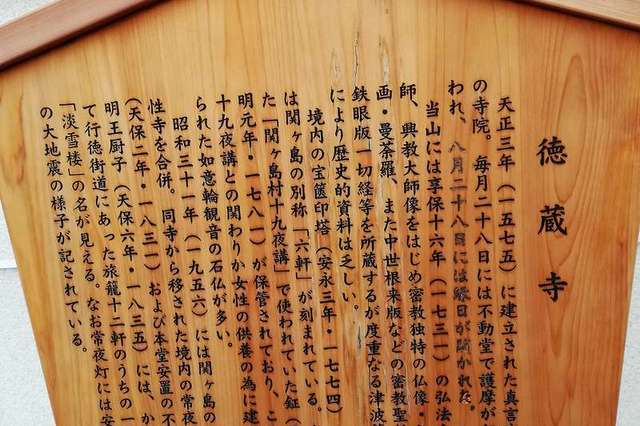 徳蔵寺
天正三年（一五七五）に建立された真言
の寺院。毎月二十八日には不動堂で護摩が
われ、八月二十八日には縁日が開かれた。
当山には享保十六年（一七三一）の弘法
師、興教大師像をはじめ密教独特の仏像・
画・曼荼羅、また中世根来版などの密教聖
鉄眼版一切経等を所蔵するが度重なる津波
により歴史的資料は乏しい。
境内の宝篋印塔（安永三年・一七七四）
は関ヶ島の別称「六軒」が刻まれている。
た「関ヶ島村十九夜講」で使われていた鉦（
明元年・一七八一）が保管されており、こ
十九夜講との関わりか女性の供養の為に建
られた如意輪観音の石仏が多い。
昭和三十一年（一九五六）には関ヶ島の
性寺を合併。同寺から移された境内の常夜
（天保二年・一八三一）および本堂安置の不
明王厨子（天保六年・一八三五）には、か
て行徳街道にあった旅籠十二軒のうちの一
「淡雪楼」の名が見える。なお常夜灯には安
の大地震の様子が記されている。